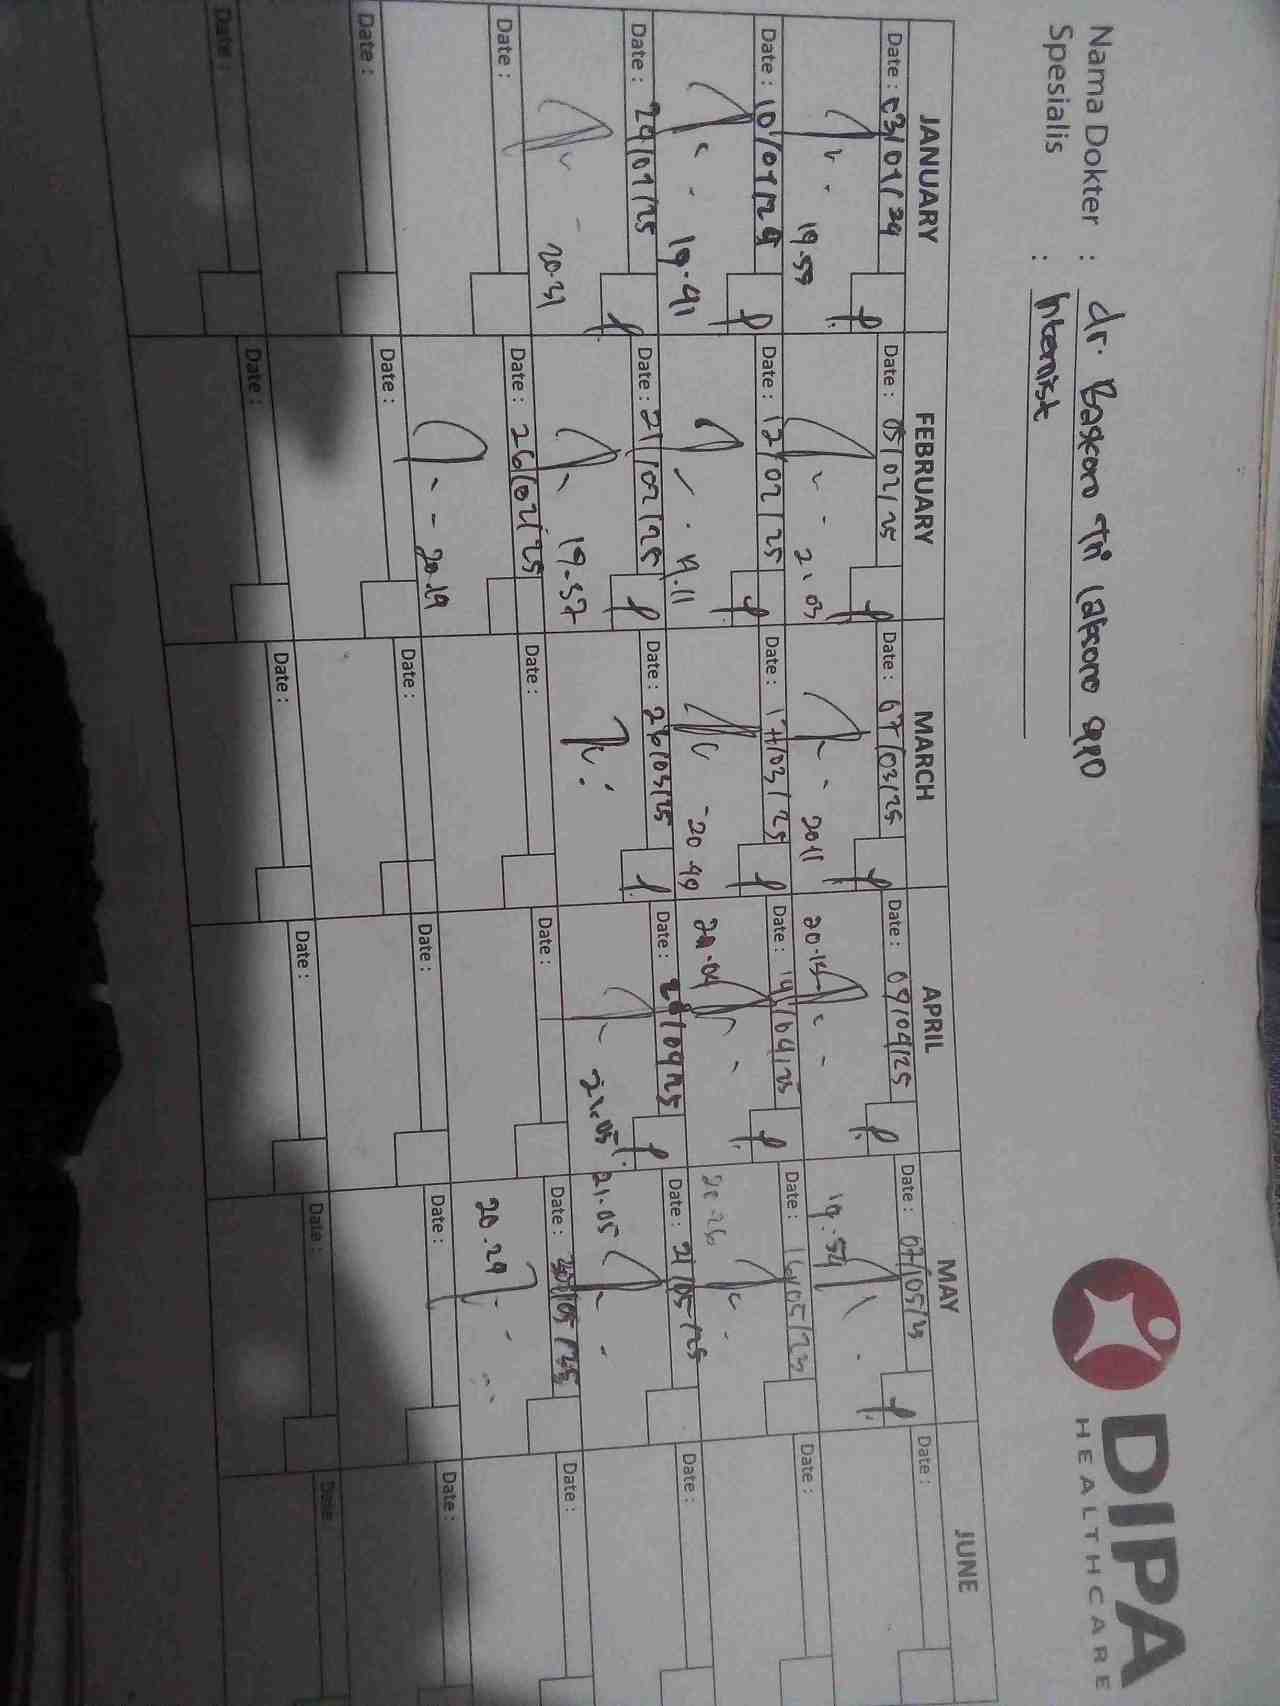 Nama Dokter : dr. Baskoro Tri Laksono SpPD
Spesialis : Internist
DIPA
HEALTHCARE
JANUARY FEBRUARY MARCH APRIL MAY JUNE
Date : 03/01/24 Date : 05/02/25 Date : 07/03/25 Date : 09/04/25 Date : 07/05/25 Date :
19.59 21.03 2011 20.15 19.54
Date : 10/01/24 Date : 12/02/25 Date : 17/03/25 Date : 14/04/25 Date : 16/05/25 Date :
19.41 20.49 20.04 20.26
Date : 24/01/25 Date : 21/02/25 Date : 26/03/25 Date : 04/25 Date : 21/05/25 Date :
20.31 19.37 21.05 21.05
Date : Date : 26/02/25 Date : Date : Date : 05/25 Date :
20.19 20.29
Date : Date : Date : Date : Date : Date :
Date : Date : Date : Date : Date : Date :